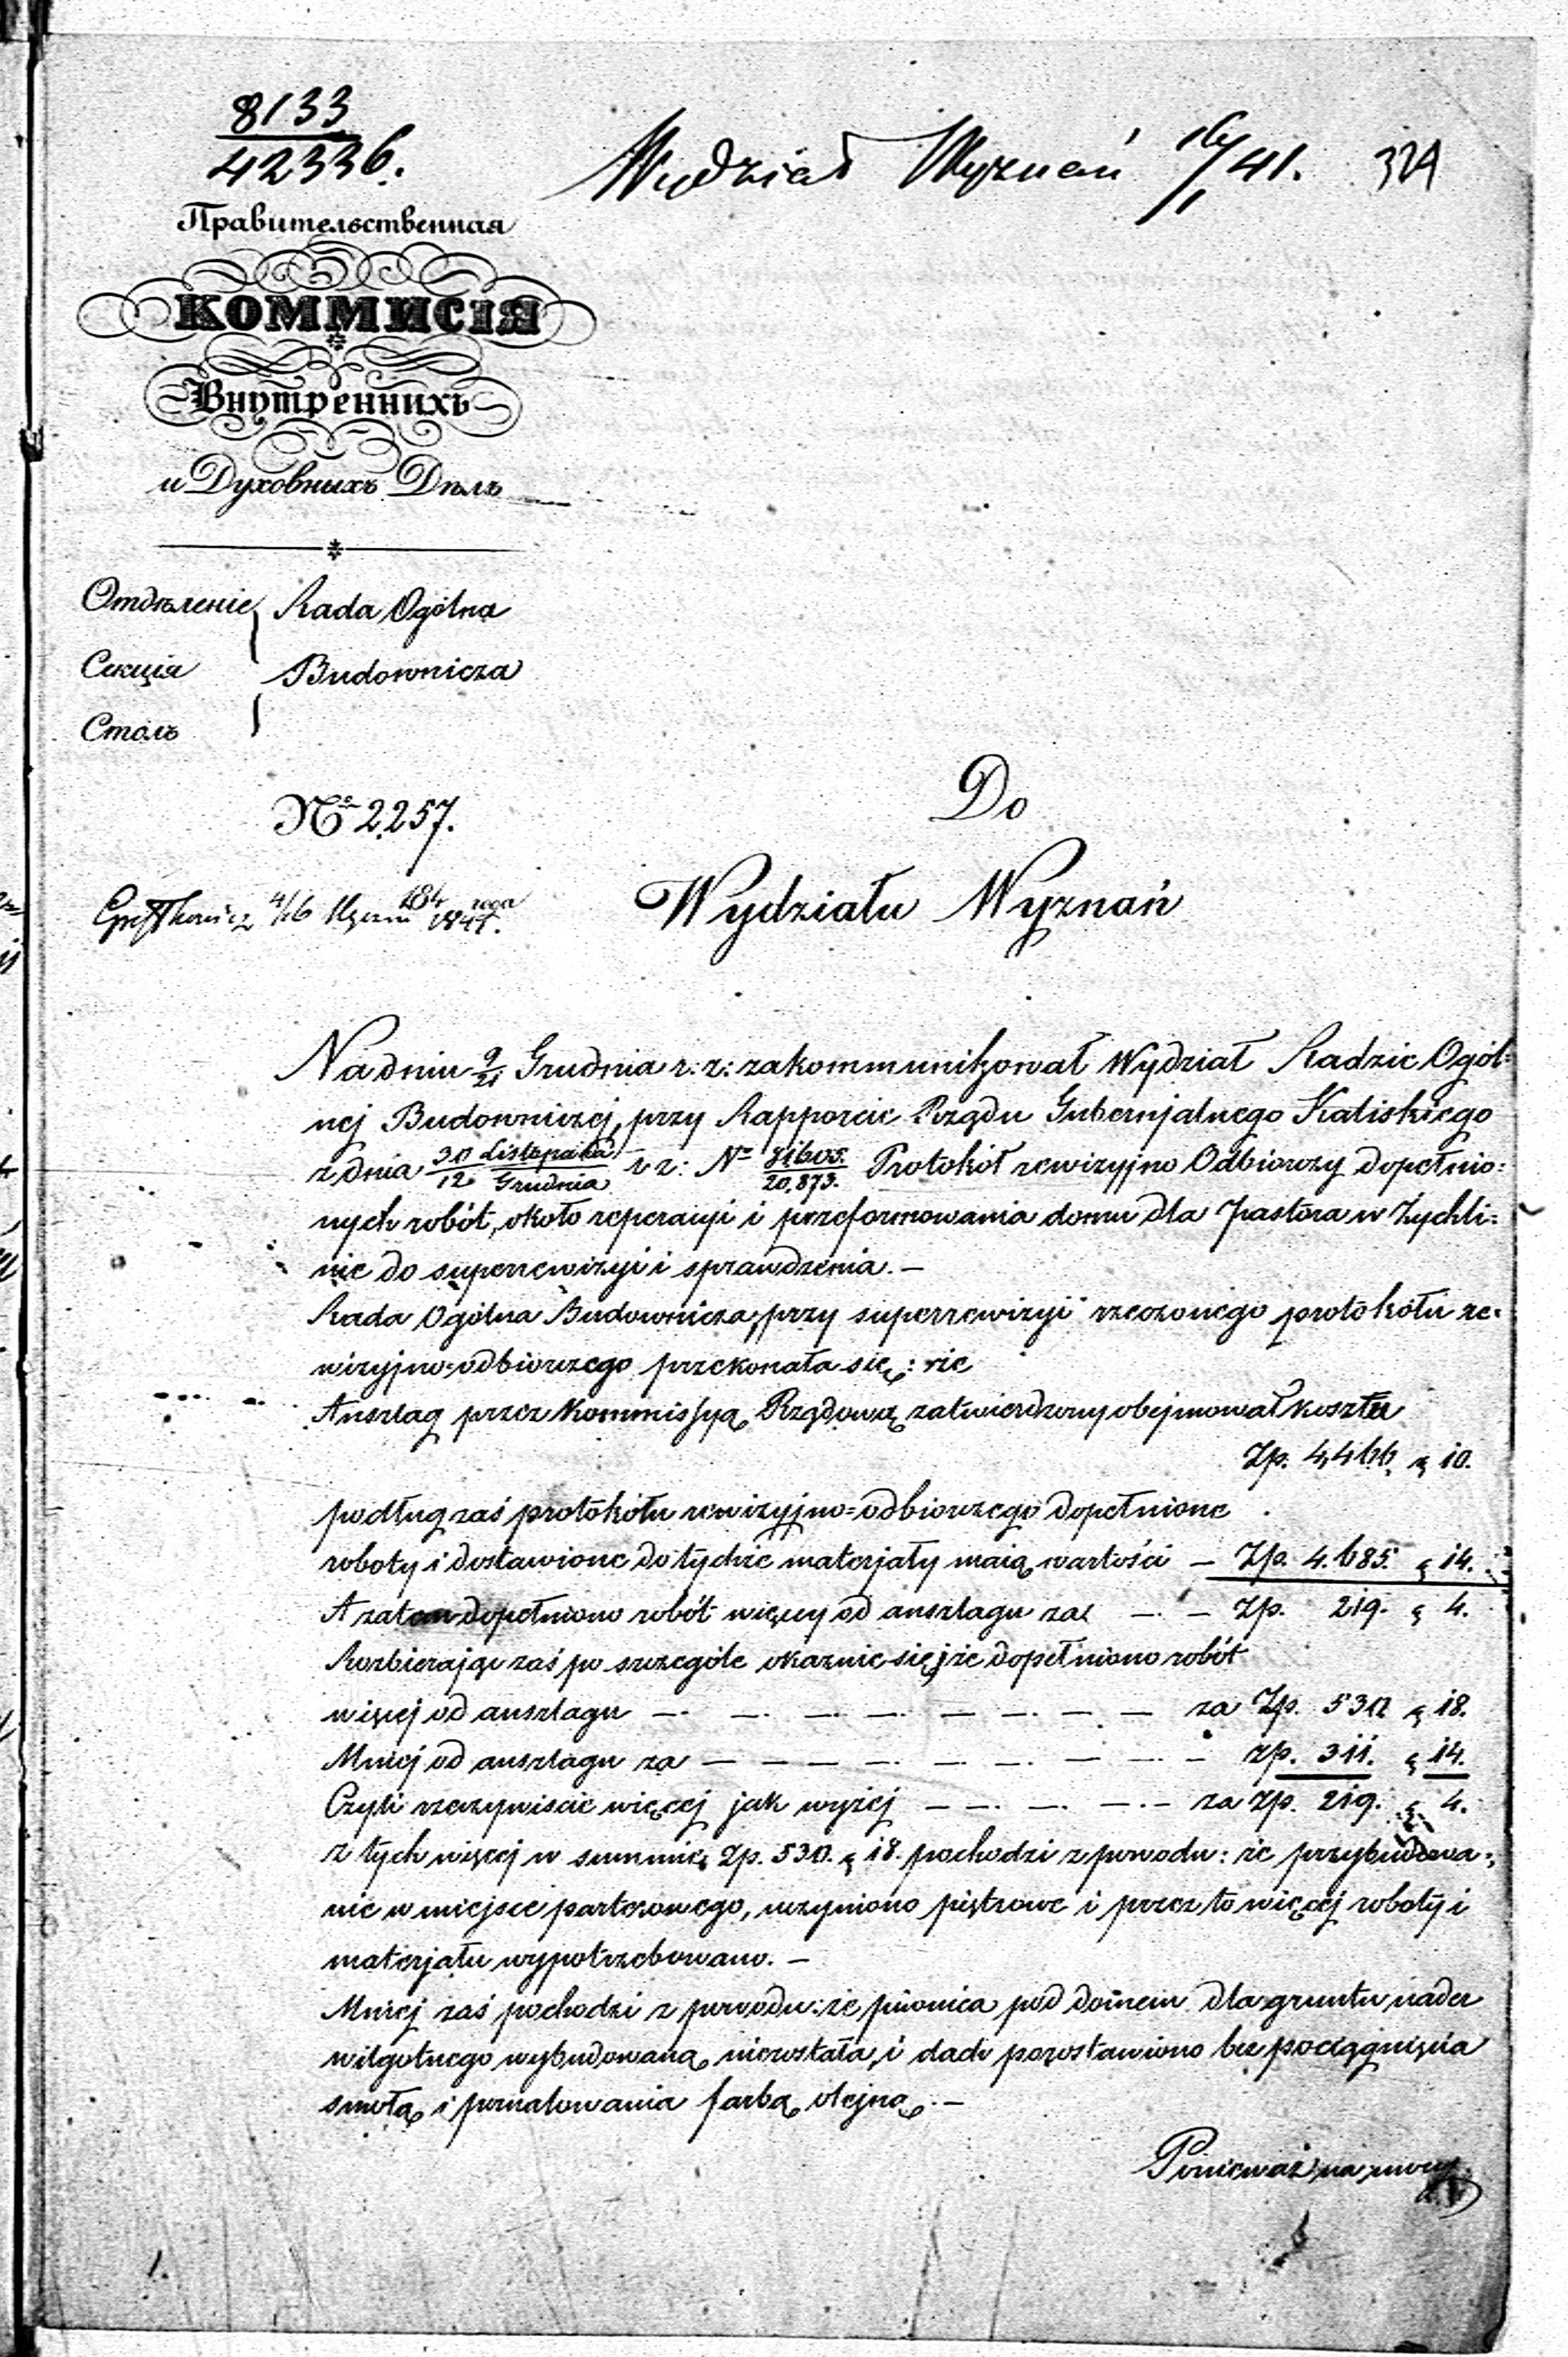 8133
42336.
Wydział Wyznań 16/1 41. 324
Правительственная
КОММИСІЯ
Внутреннихъ
и Духовныхъ Дѣлъ
Отдѣленіе Rada Ogólna
Секція Budownicza
Столъ
№ 2257.
Do
Wydziału Wyznań
4/16 184 года 1841.
Na dniu 9/21 Grudnia r: z: zakommunikował Wydział Radzie Ogól=
nej Budowniczej, przy Rapporcie Rządu Gubernjalnego Kaliskiego
z dnia 30 Listopada/12 Grudnia r z: N 71605./20,873. Protokół rewizyjno Odbiorczy dopełnio=
nych robót, około reperacyi i przeformowania domu dla Pastora w Żychli=
nie do superrewizyi i sprawdzenia. —
Rada Ogólna Budownicza, przy superrewizyi rzeczonego protokółu re=
wizyjno=odbiorczego przekonała się: że
Anszlag przez Kommissyą Rządową zatwierdzony obejmował koszta
Zp. 4,466. g 10.
podług zaś protokółu rewizyjno=odbiorczego dopełnione
roboty i dostawione do tychże materjały maią wartości — Zp. 4.685. g 14.
A zatem dopełniono robót więcej od anszlagu za — — Zp. 219. g 4.
Rozbierając zaś po szczególe okaznie się, że dopełniono robót
więcej od anszlagu — — — — — — — — za Zp. 530 g 18.
Mniej od anszlagu za — — — — — — — — zp. 311. g 14.
Czyli rzeczywiście więcej jak wyżej — — — — za zp. 219. g 4.
z tych więcej w summie Zp. 530. g 18. pochodzi z powodu: że przybudowa=
nie w miejsce parterowego, uczyniono piętrowe i przez to więcej roboty i
materjału wypotrzebowano. —
Mniej zaś pochodzi z powodu: że piwnica pod domem dla gruntu nader
wilgotnego wybudowaną niezostała, i dach pozostawiono bez pociągnięcia
smołą i pomalowania farbą olejną. —
Ponieważ na mocy
1.